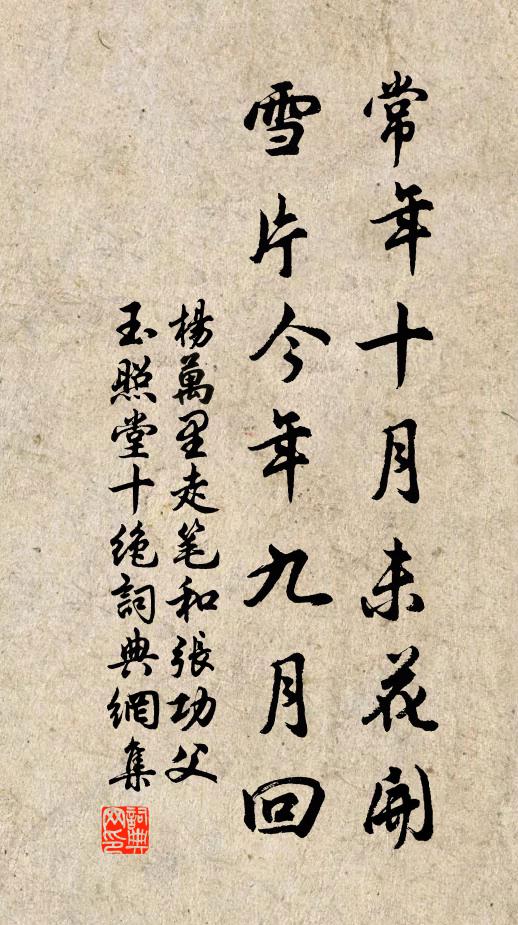 常年十月未花開
雪片今年九月回
楊萬里走笔和張功父
玉照堂十绝詞典網集
詞典网印